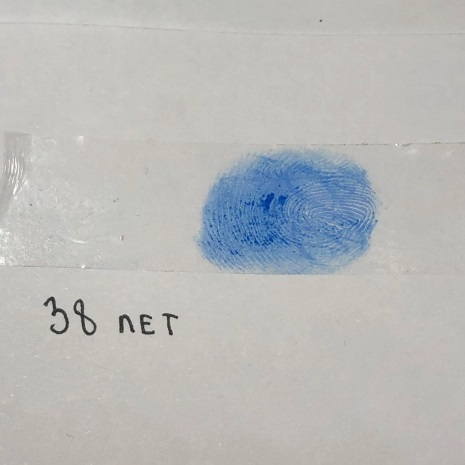 38 лет